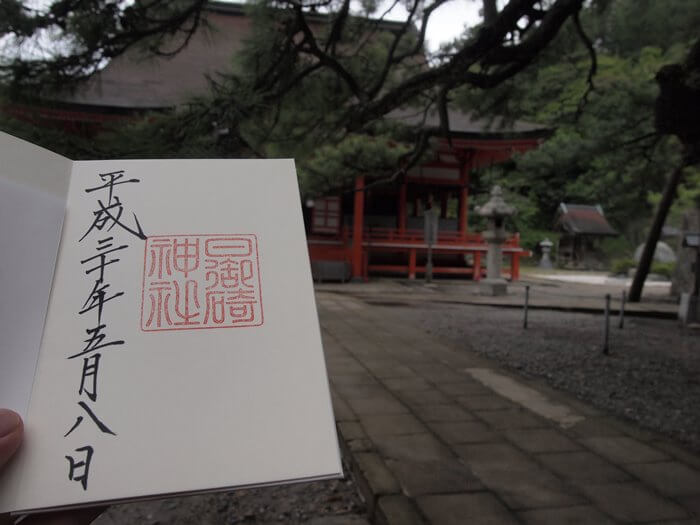 日御碕
神社
平成三十年五月八日